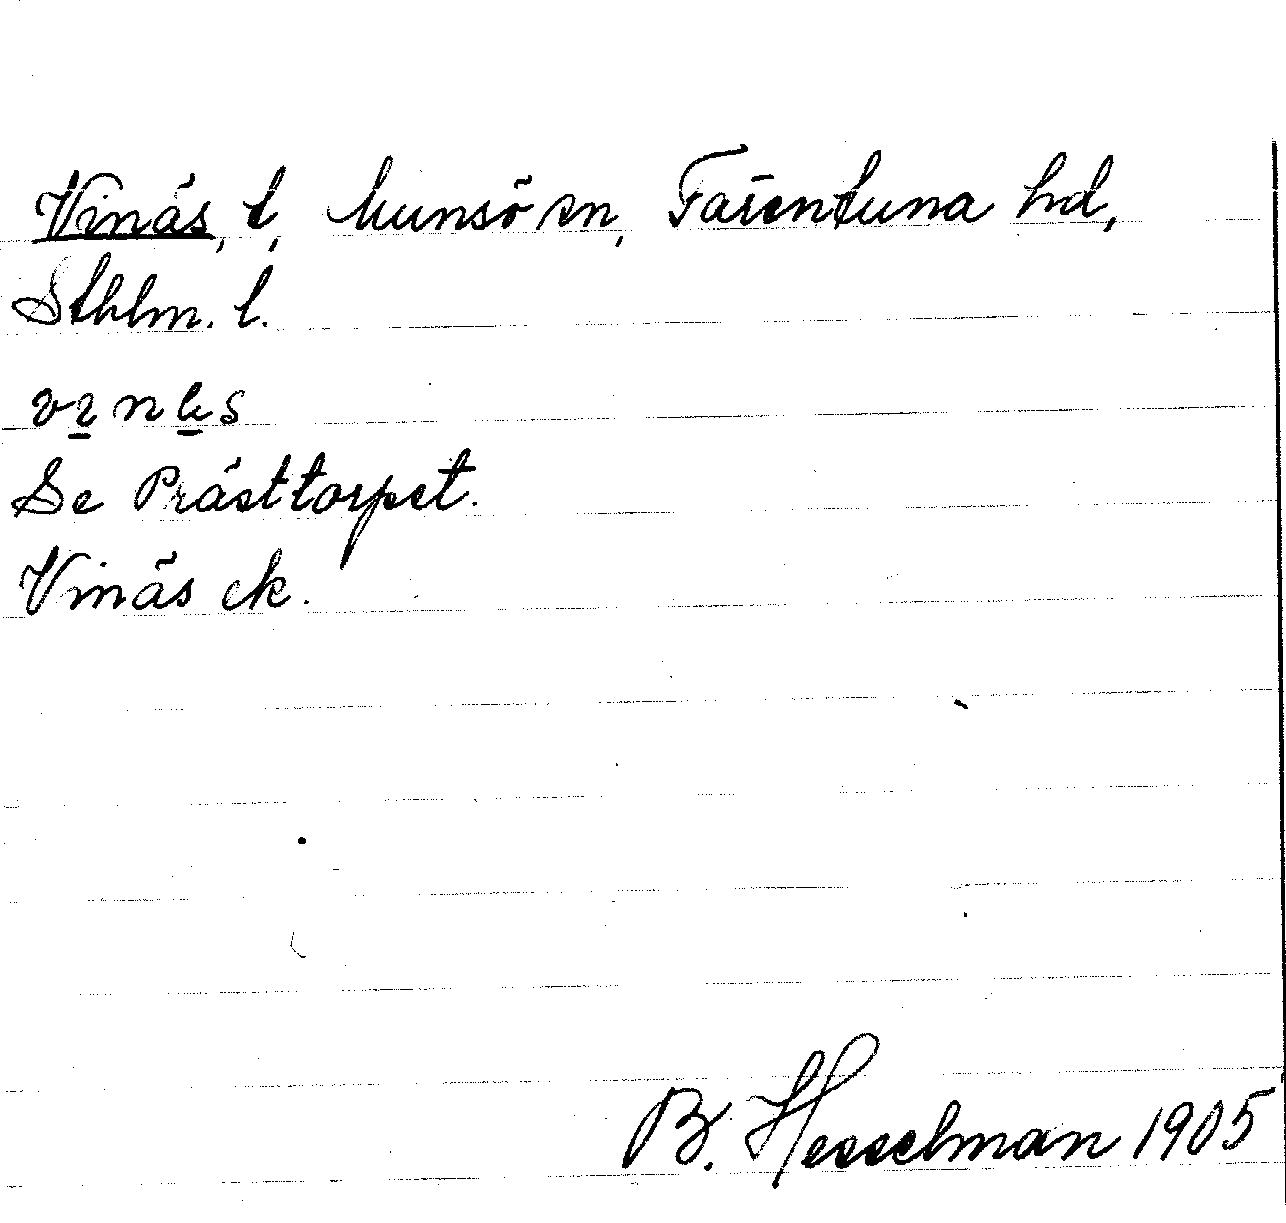 Vinäs, t, Munsö sn, Färentuna hd,
Sthlm. l.
Se Prästtorpet.
Vinäs ek.
B. Hesselman 1905